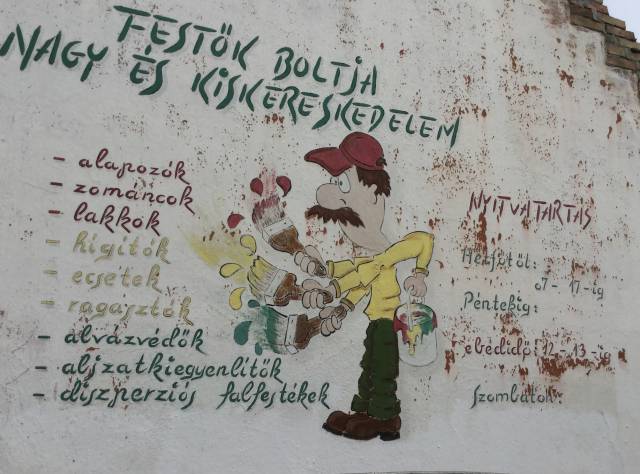 FESTŐK BOLTJA
NAGY ÉS KISKERESKEDELEM
- alapozók
- zománcok
- lakkok
- higítók
- ecsetek
- ragasztók
- alvázvédők
- aljzatkiegyenlítők
- diszperziós falfestékek
NYITVATARTÁS
Hétfőtől:
07-17-ig
Péntekig:
ebédidő: 12-13-ig
Szombaton: